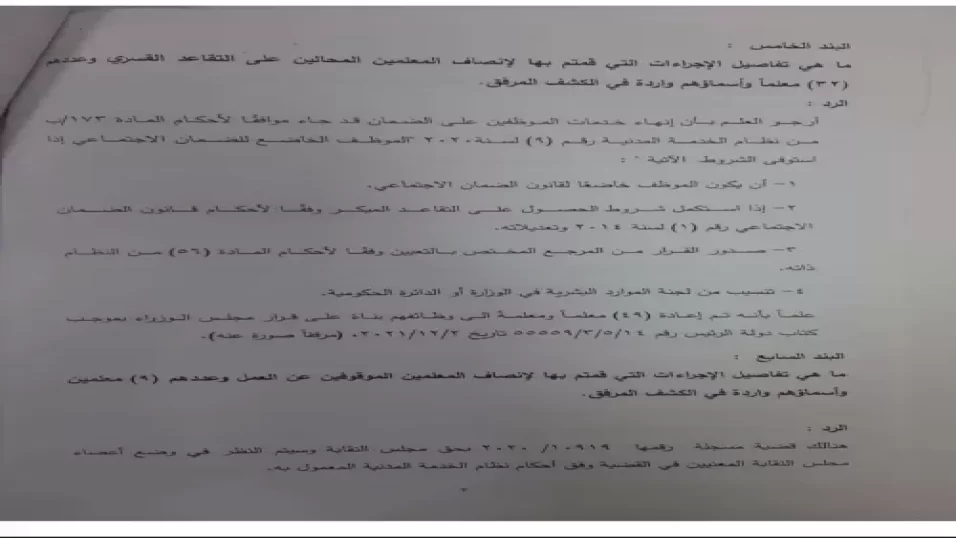 البند الخامس :
ما هي تفاصيل الإجراءات التي قمتم بها لإنصاف المعلمين المحالين على التقاعد القسري وعددهم
(٣٢) معلماً وأسماؤهم واردة في الكشف المرفق.
الرد :
أرجو العلم بأن إنهاء خدمات الموظفين على الضمان قد جاء موافقًا لأحكام المادة ١٧٣/ب
من نظام الخدمة المدنية رقم (٩) لسنة ٢٠٢٠ "الموظف الخاضع للضمان الاجتماعي إذا
استوفى الشروط الآتية " :
١- أن يكون الموظف خاضعًا لقانون الضمان الاجتماعي.
٢- إذا استكمل شروط الحصول على التقاعد المبكر وفقًا لأحكام قانون الضمان
الاجتماعي رقم (١) لسنة ٢٠١٤ وتعديلاته.
٣- صدور القرار من المرجع المختص بالتعيين وفقًا لأحكام المادة (٥٦) من النظام
ذاته.
٤- تنسيب من لجنة الموارد البشرية في الوزارة أو الدائرة الحكومية.
علماً بأنه تم إعادة (٤٩) معلماً ومعلمة الى وظائفهم بناءً على قرار مجلس الوزراء بموجب
كتاب دولة الرئيس رقم ٥٥٥٥٩/٣/٥/١٤ تاريخ ٢٠٢١/١٢/٢. (مرفقاً صورة عنه).
البند السابع :
ما هي تفاصيل الإجراءات التي قمتم بها لإنصاف المعلمين الموقوفين عن العمل وعددهم (٩) معلمين
وأسماؤهم واردة في الكشف المرفق.
الرد :
هنالك قضية مسجلة رقمها ١٠٩١٩/ ٢٠٢٠ بحق مجلس النقابة وسيتم النظر في وضع أعضاء
مجلس النقابة المعنيين في القضية وفق أحكام نظام الخدمة المدنية المعمول به.